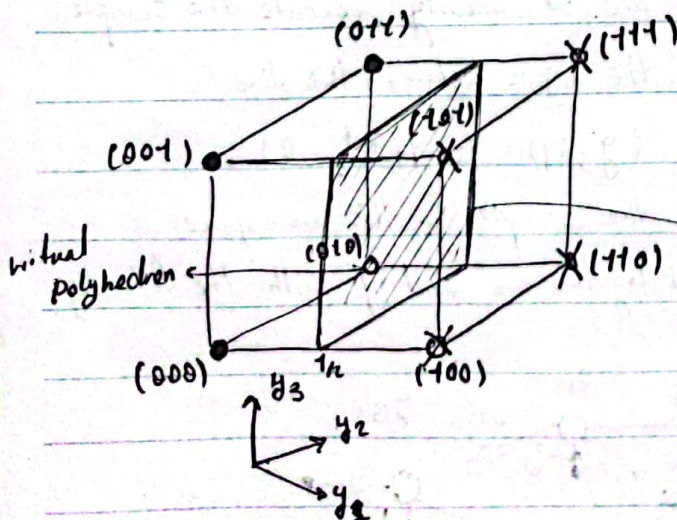 (011)
(111)
(001)
(101)
virtual
polyhedron
(010)
(110)
(000)
1/2
(100)
y3
y2
y1